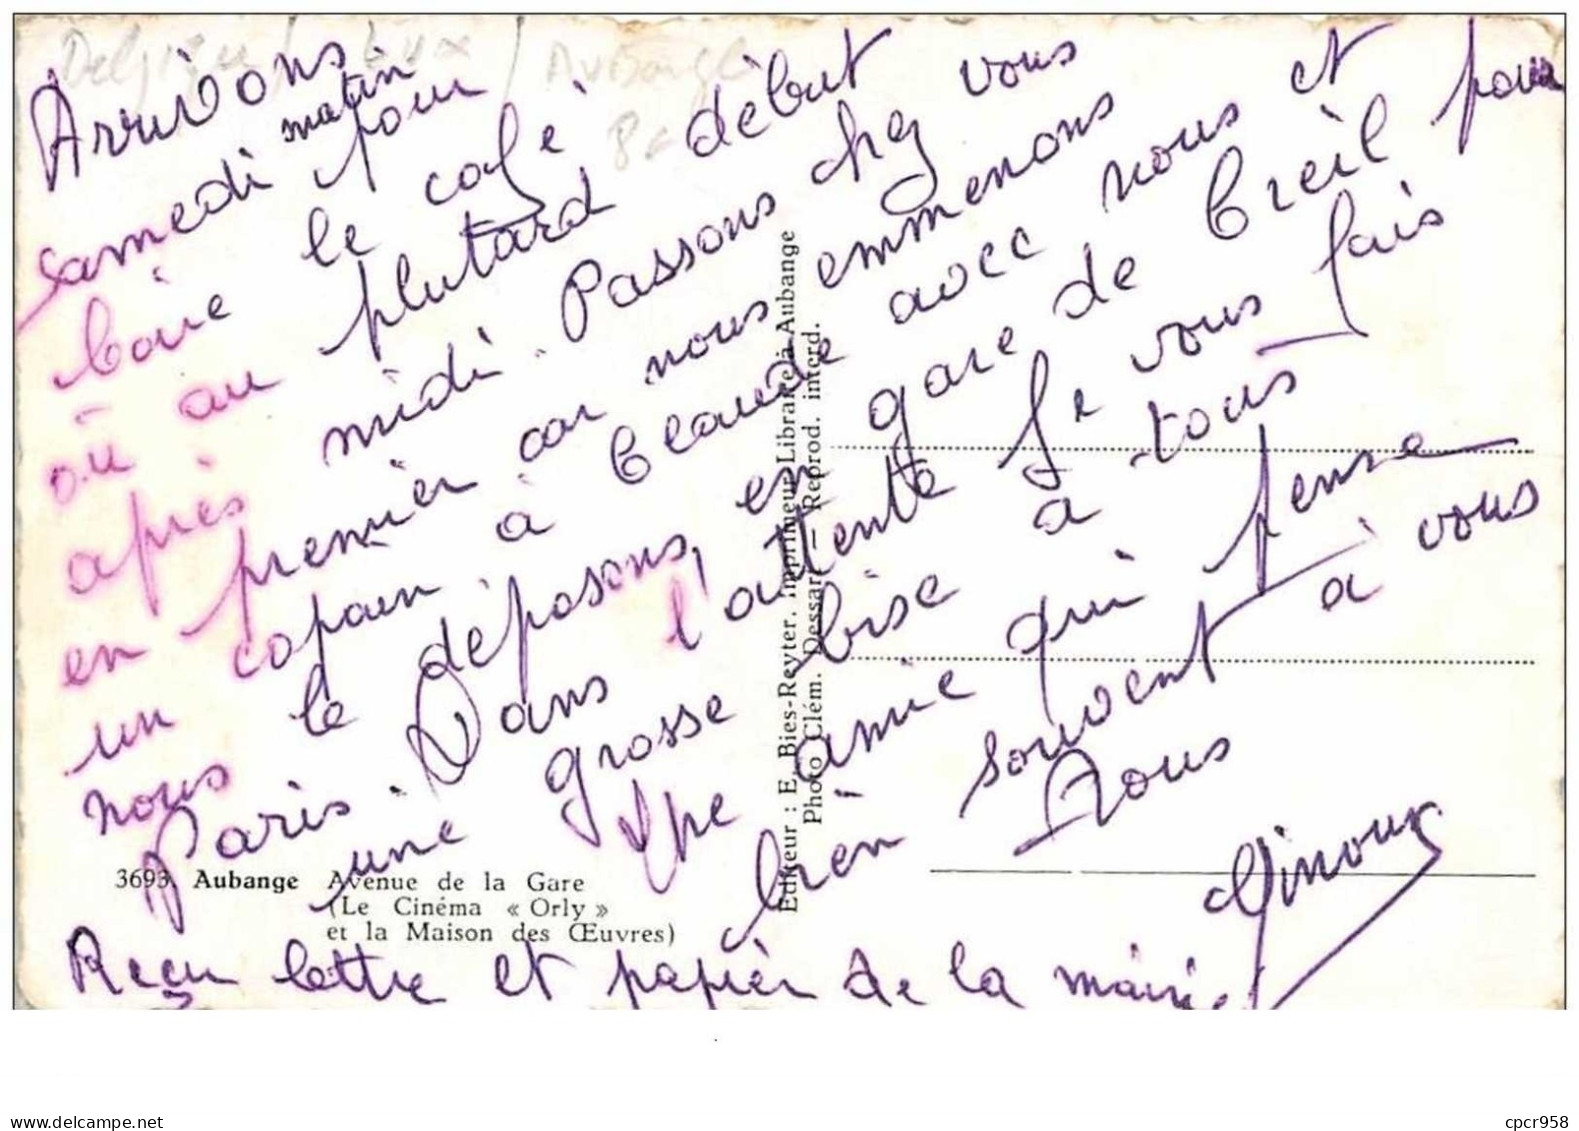 Arrivons
samedi matin pour
boire le café
où au plutard début
après midi. Passons chez vous
en premier car nous emmenons
un copain à Claude avec nous et
nous le déposons, en gare de Creil pour
Paris. Dans l'attente Je vous fais
une grosse bise à tous
Ype amie qui pense
bien souvent à vous
Nous
Ginoux
Reçu lettre et papier de la mairie
3693. Aubange Avenue de la Gare
(Le Cinéma « Orly »
et la Maison des Œuvres)
Editeur : E. Bies-Reyter. Imprimeur-Libraire à Aubange
Photo Clém. Dessart — Reprod. interd.
Belgique / Lux / Aubange
cpcr958